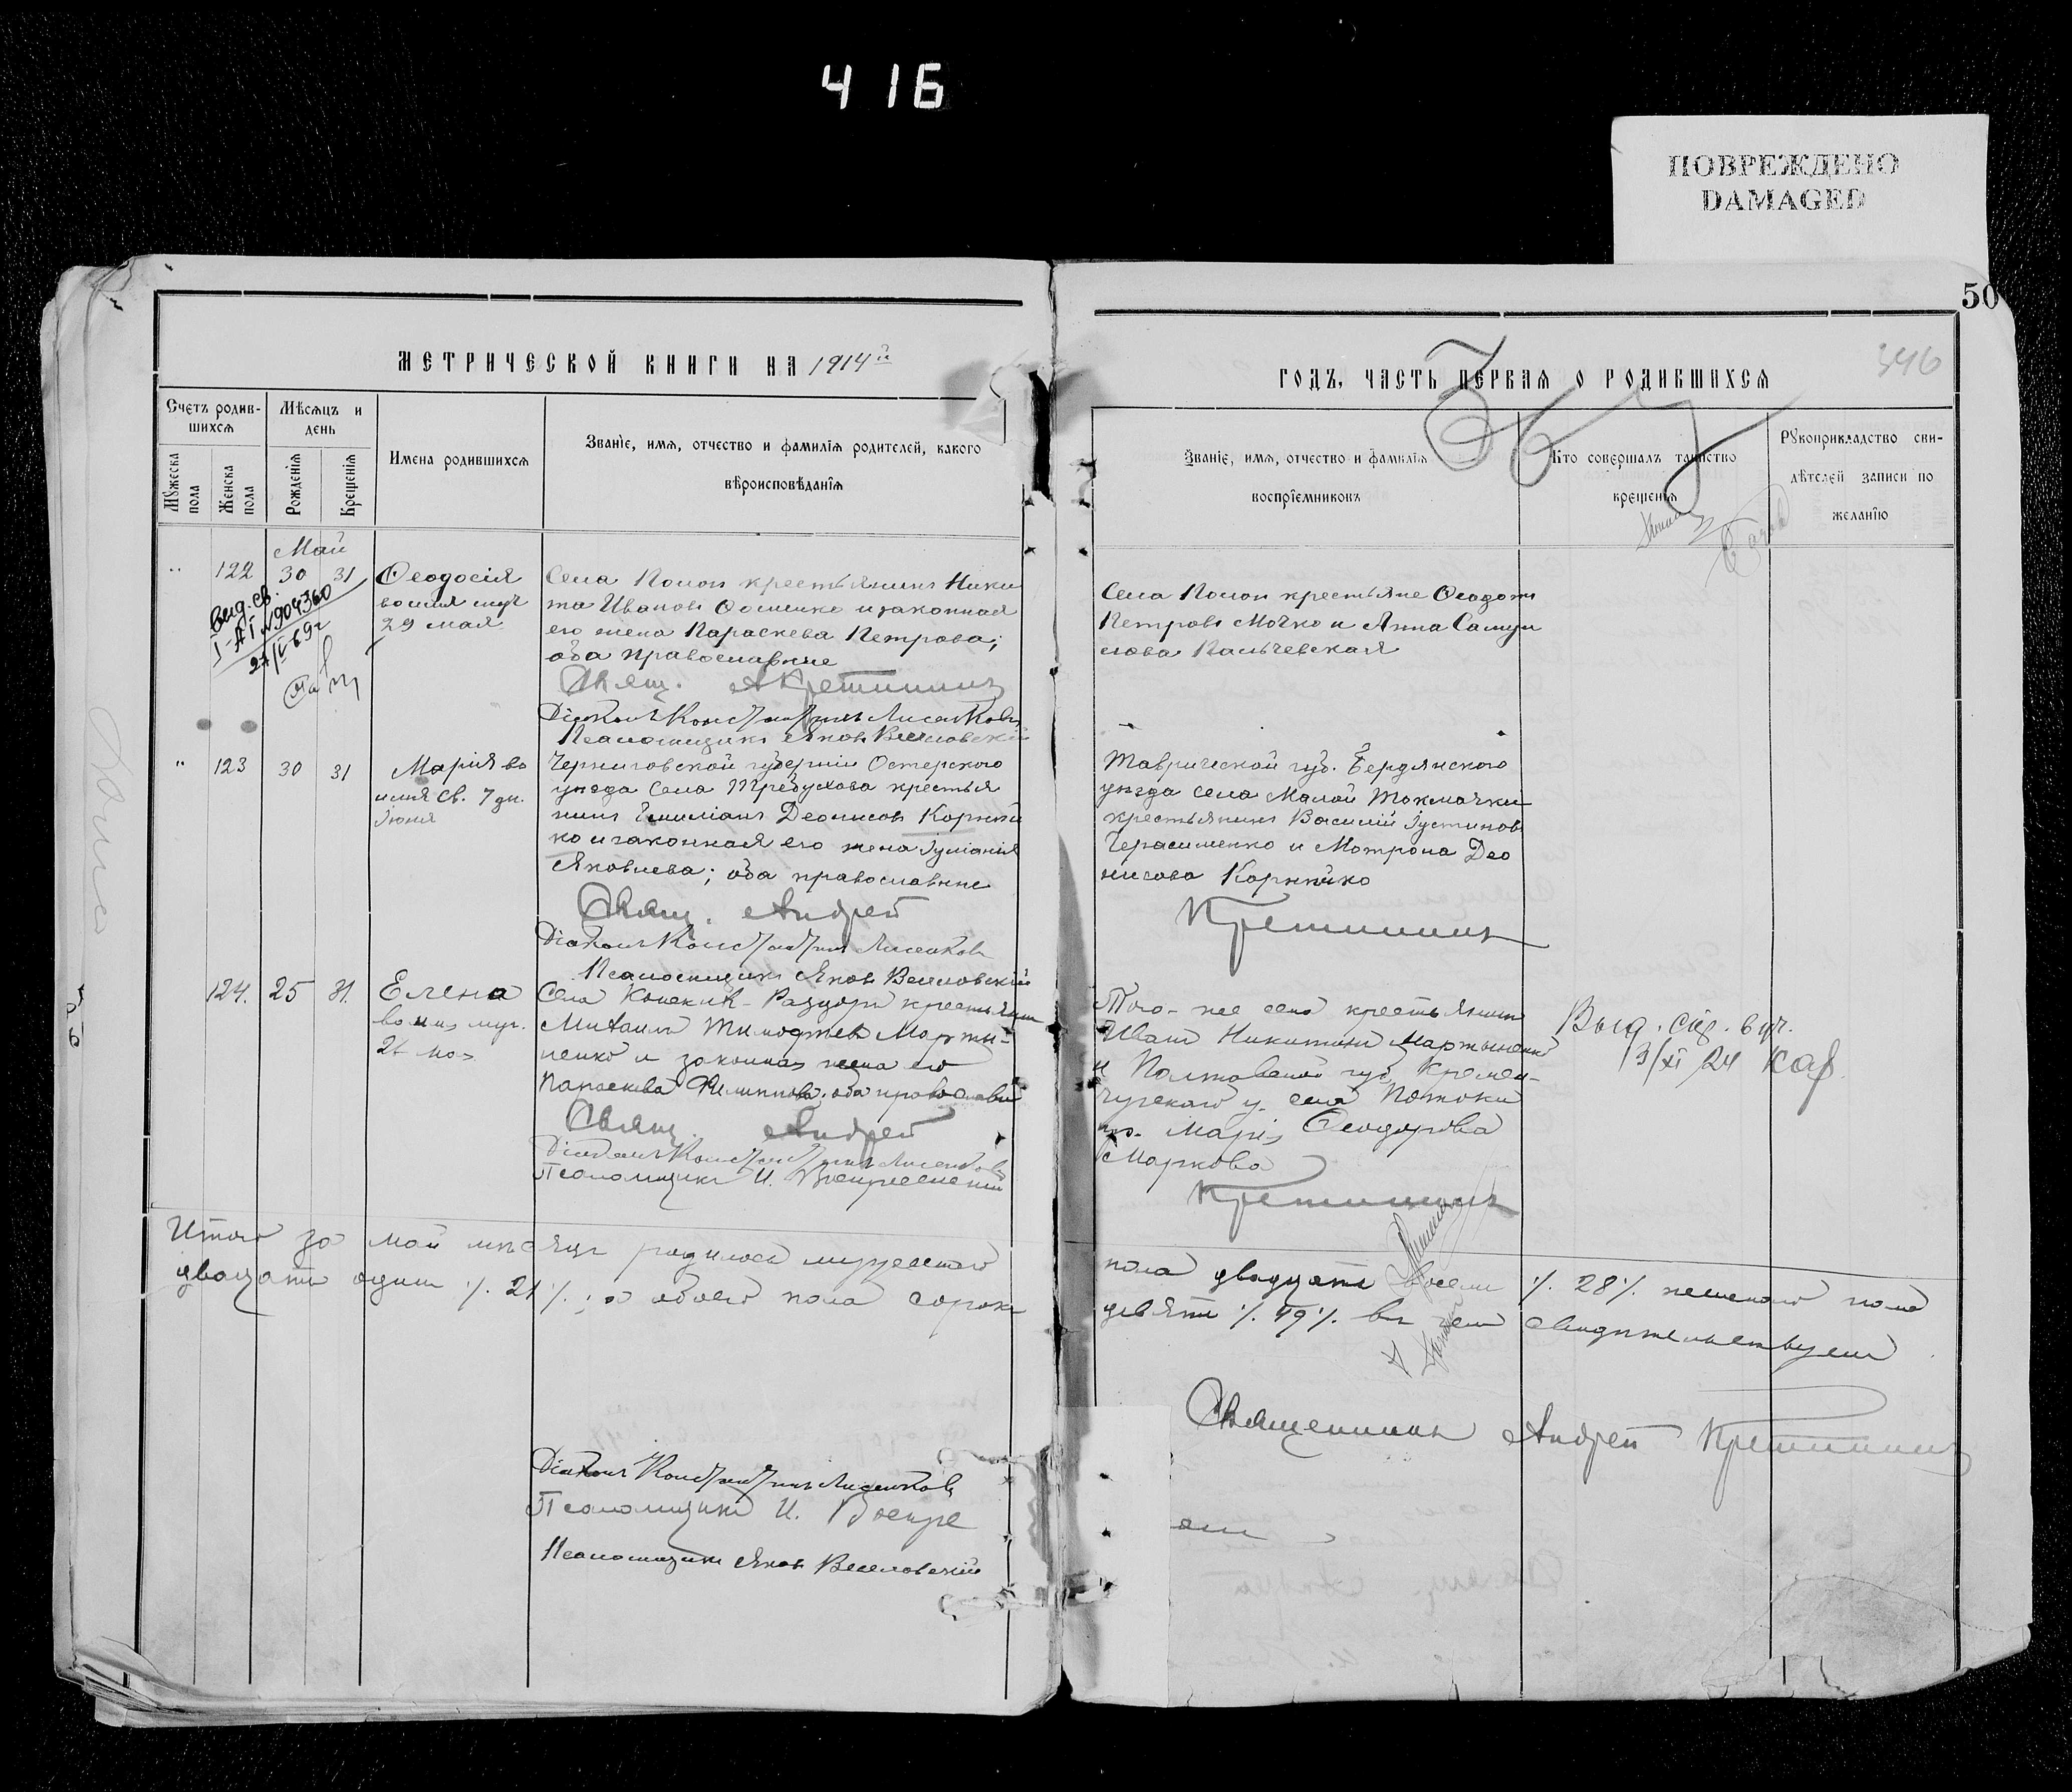 416
ПОВРЕЖДЕНО
DAMAGED
50
346
МЕТРИЧЕСКОЙ КНИГИ НА 1914й
ГОДЪ, ЧАСТЬ ПЕРВАЯ О РОДИВШИХСЯ
Счетъ родив-
шихся
Мѣсяцъ и
день
Мужеска
пола
Женска
пола
Рожденія
Крещенія
Имена родившихся
Званіе, имя, отчество и фамилія родителей, какого
вѣроисповѣданія
Званіе, имя, отчество и фамилія
воспріемниковъ
Кто совершалъ таинство
крещенія
Рукоприкладство сви-
дѣтелей записи по
желанію
Май
" 122 30 31
Ѳеодосія
во имя муч
29 мая
Выд. св.
I-АП №904360
27/V-69г
Села Пологи крестьянинъ Ники
та Ивановъ и законная
его жена Параскева Петрова;
оба православные
Свящ. А Кретининъ
Діаконъ Константинъ Лисенковъ
Псаломщикъ Яковъ Веселовскій
Села Пологи крестьяне Ѳеодотъ
Петровъ Мочко и Анна Самуи
лова Пальчевская
" 123 30 31
Марія во
имя св. 7 дн.
Іюня
Черниговской губерніи Остерского
уѣзда села Требухова крестья
нинъ Емиліанъ Деонисовъ Корнѣй
ко и законная его жена Іуліанія
Яковлева; оба православные
Свящ. Андрей
Діаконъ Константинъ Лисенковъ
Псаломщикъ Яковъ Веселовскій
Таврической губ. Бердянского
уѣзда села Малой Токмачки
крестьянинъ Василій Іустиновъ
Герасименко и Мотрона Део
нисова Корнѣйко
Кретининъ
124. 25 31.
Елена
во имя муч.
21 мая
Села Конскихъ-Раздоръ крестьянинъ
Михаилъ Тимоѳеевъ Марты-
ненко и законная жена его
Параскева Филиппова; оба православн
Свящ. Андрей
Діаконъ Константинъ Лисенковъ
Псаломщикъ И. Воскресенскій
Того-же села крестьянинъ
Иванъ Никитинъ Мартыненко
и Полтавской губ. Кремен-
чугскаго у. села Потоки
кр. Марія Ѳеодорова
Маркова
Кретининъ
Выд. св. в уч.
13/XI 24
Итого за май мѣсяцъ родилось мужескаго
пола двадцать восемь ·/. 28 ·/. женскаго пола
двадцать одинъ ·/. 21 ·/. ; а обоего пола сорокъ
девять ·/. 49 ·/. въ чемъ свидѣтельствуемъ
Священникъ Андрей Кретининъ
Діаконъ Константинъ Лисенковъ
Псаломщикъ И. Воскре
Псаломщикъ Яковъ Веселовскій